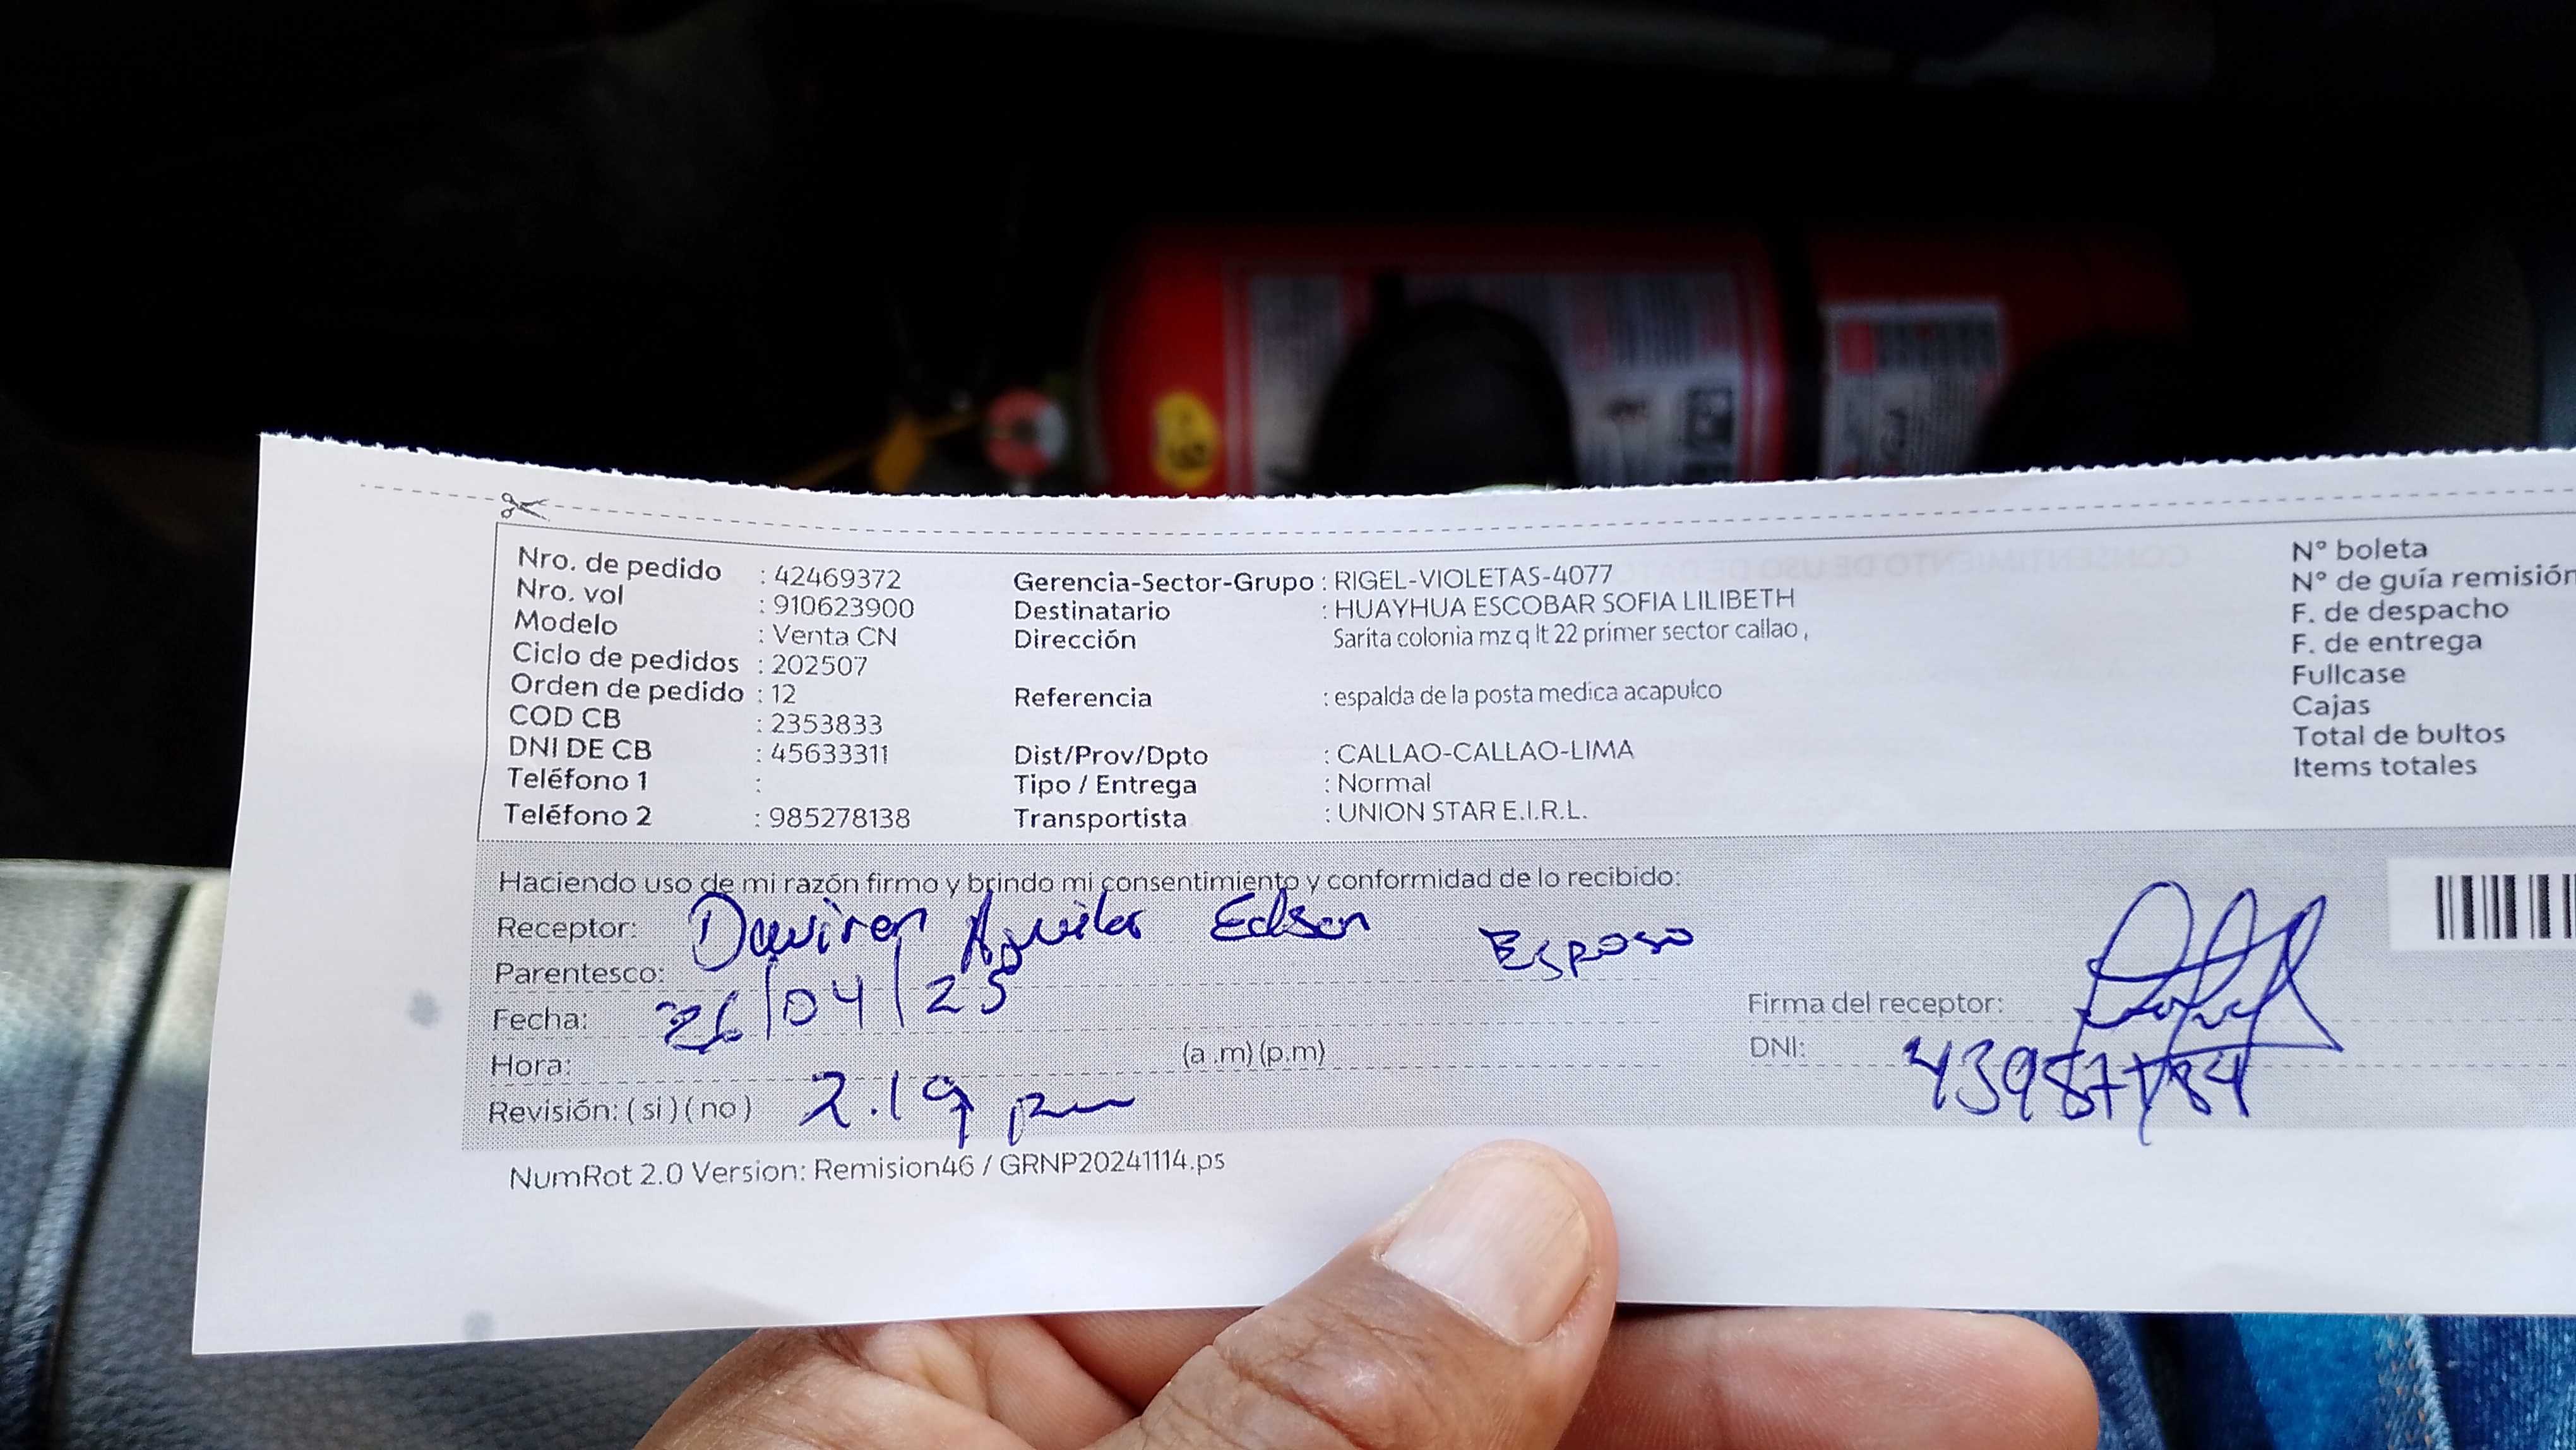 Nro. de pedido : 42469372
Nro. vol : 910623900
Modelo : Venta CN
Ciclo de pedidos : 202507
Orden de pedido : 12
COD CB : 2353833
DNI DE CB : 45633311
Teléfono 1 :
Teléfono 2 : 985278138
Gerencia-Sector-Grupo : RIGEL-VIOLETAS-4077
Destinatario : HUAYHUA ESCOBAR SOFIA LILIBETH
Dirección Sarita colonia mz q lt 22 primer sector callao ,
Referencia : espalda de la posta medica acapulco
Dist/Prov/Dpto : CALLAO-CALLAO-LIMA
Tipo / Entrega : Normal
Transportista : UNION STAR E.I.R.L.
N° boleta
N° de guía remisión
F. de despacho
F. de entrega
Fullcase
Cajas
Total de bultos
Items totales
Haciendo uso de mi razón firmo y brindo mi consentimiento y conformidad de lo recibido:
Receptor: Aguilar Edson Esposo
Parentesco:
Fecha: 26/04/25
Hora: (a .m) (p.m)
Revisión: ( si ) ( no ) 2.19 pm
Firma del receptor:
DNI:
NumRot 2.0 Version: Remision46 / GRNP20241114.ps